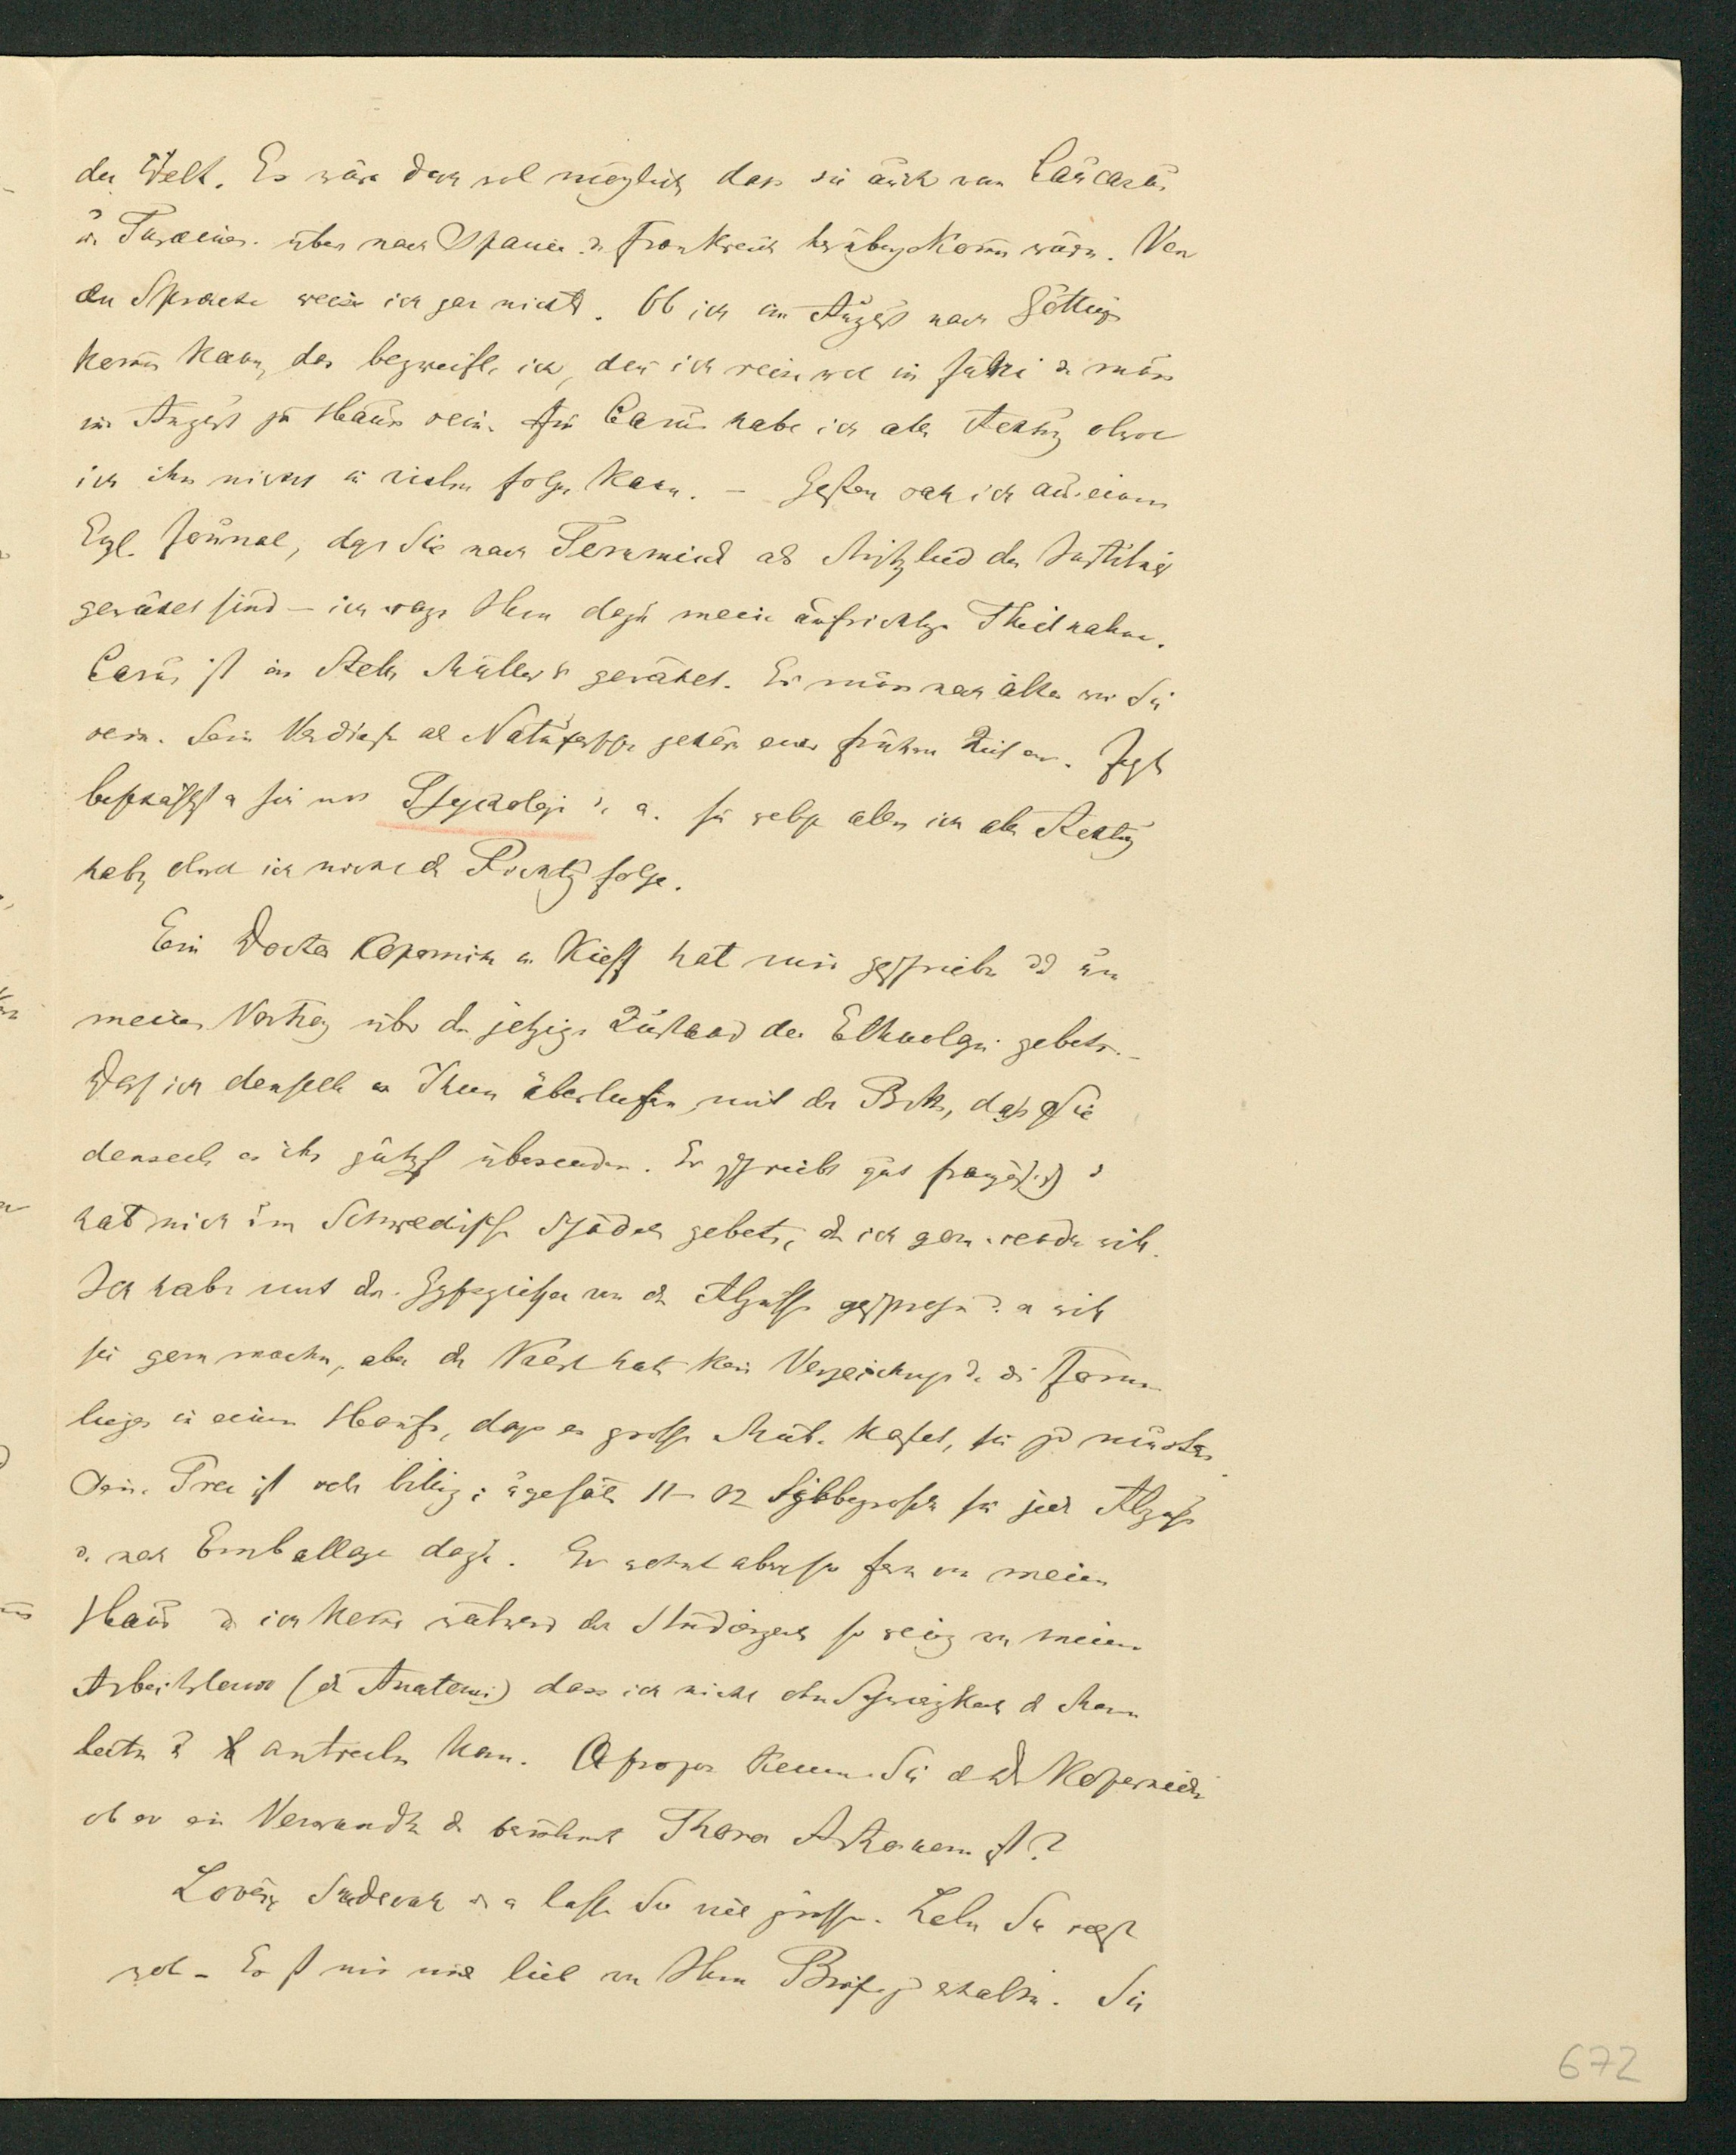 der Welt. Es wäre doch wol möglich dass sie auch vom Caucasus
u. über nach Spanien u. Frankreich herübergekommen wären. Von
den Sprache weiss ich gar nichts. Ob ich im August nach Götting
komm kann, das bezweifle ich, den ich reise wol im Juli u. muss
im August zu Hause sein. Für Carus habe ich alle Achtung obwol
ich ihm nicht in vielem folgen kann. – Gestern sah ich aus einem
Engl. Journal, dass Sie nach Tiedemann als Mitglied des Instituts
gewählt sind – ich sage Ihnen dazu meine aufrichtige Theilnahme.
Carus ist in Stelle Müllers gewählt. Er muss noch älter wie Sie
sein. Sein Verdienste als Naturforscher gehören einer frühern Zeit an. Jetzt
beschäftigt er sich mit Psychologie u. a. für welche allen ich alle Achtung
habe, obwol ich nicht der Richtung folge.
Ein Doctor Kopernicki in Kieff hat mir geschrieben u. um
meinen Vortrag über den jetzigen Zustand der Ethnologie gebeten.
Darf ich denselben an Ihnen überliefern, mit der Bitte, dass Sie
denselben an ihn gütigst übersenden. Er schreibt gut französisch u.
hat mich um Schwedische Schädel gebeten, die ich gern senden will.
Ich habe mit dem Gypsgiesser von den Abgüssen gesprochen u. er will
sie gern machen, aber der Kerl hat kein Verzeichniss u. die Formen
liegen in einem Haufe, dass es grosse Mühe kostet, sie zu mustern.
Sein Preis ist sehr billig: ungefähr 11–12 Silbergroschen für jeden Abguss
u. noch Emballage dazu. Er wohnt aber so fern von meinem
Haus u. ich komme während der Studienzeit so wenig von meinem
Arbeitslocal (der Anatomie) dass ich nicht ohne Schwierigkeit den Mann
antreffen kann. Apropos kennen Sie den Dr Kopernicki
ob er ein Verwandter des berühmten Thorner Astronomen ist?
Lovén, Sundevall u. a. lassen Sie viel grüssen. Leben Sie recht
wol – Es ist mir viel lieb von Ihnen Briefe zu erhalten. Sie
672